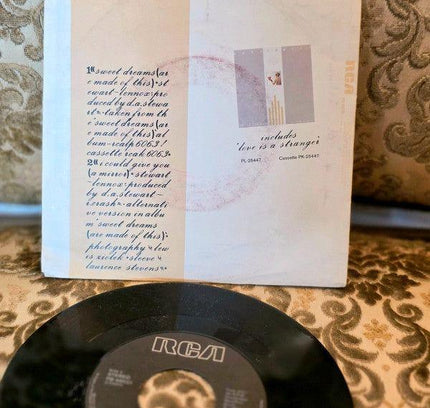 1st sweet dreams (ar
e made of this)•st
ewart-lennox•pro
duced by d.a.stewa
rt•taken from th
e sweet dreams (ar
e made of this) al
bum•rcalp6063/
cassette rcak6063•
2nd i could give you
(a mirror)•stewart
-lennox•produced
by d.a.stewart-
crash•alternati
ve version in albu
m sweet dreams
(are made of this);
photography•lew
is ziolek•sleeve•
laurence stevens•
includes
'love is a stranger'
PL-25447 Cassette PK-25447
RCA
RCA
STEREO